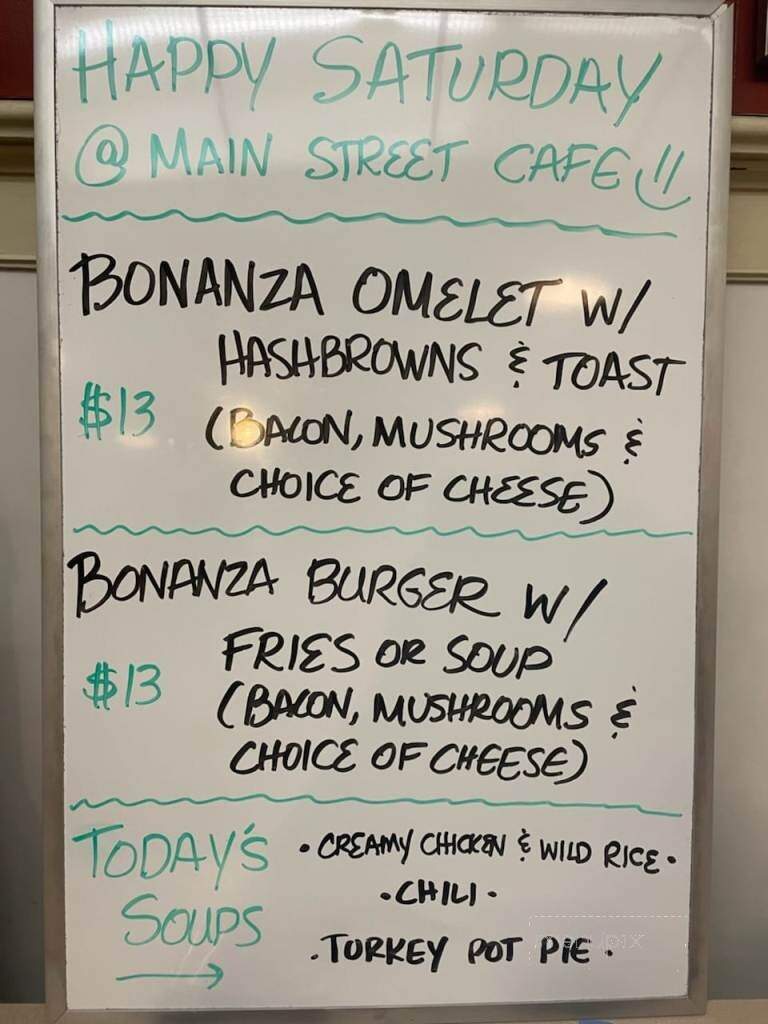 HAPPY SATURDAY
@ MAIN STREET CAFE!!
BONANZA OMELET W/
HASHBROWNS & TOAST
$13 (BACON, MUSHROOMS &
CHOICE OF CHEESE)
BONANZA BURGER W/
FRIES OR SOUP
$13 (BACON, MUSHROOMS &
CHOICE OF CHEESE)
TODAY'S • CREAMY CHICKEN & WILD RICE •
SOUPS • CHILI •
• TURKEY POT PIE •